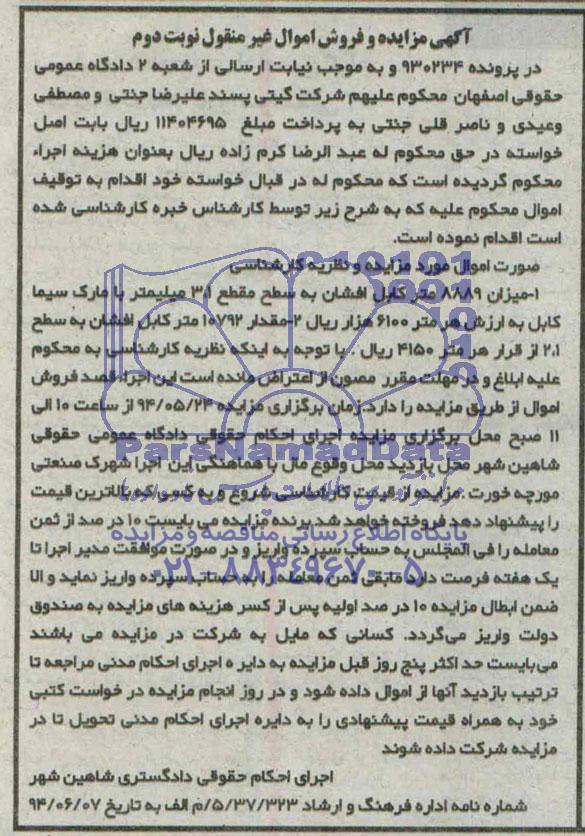 آگهی مزایده و فروش اموال غیر منقول نوبت دوم
در پرونده ۹۳۰۲۳۴ و به موجب نیابت ارسالی از شعبه ۲ دادگاه عمومی
حقوقی اصفهان محکوم علیهم شرکت گیتی پسند علیرضا جنتی و مصطفی
وعیدی و ناصر قلی جنتی به پرداخت مبلغ ۱۱۴۰۴۶۹۵ ریال بابت اصل
خواسته در حق محکوم له عبد الرضا کرم زاده ریال بعنوان هزینه اجراء
محکوم گردیده است که محکوم له در قبال خواسته خود اقدام به توقیف
اموال محکوم علیه که به شرح زیر توسط کارشناس خبره کارشناسی شده
است اقدام نموده است.
صورت اموال مورد مزایده و نظریه کارشناسی
۱-میزان ۸۸۸۹ متر کابل افشان به سطح مقطع ۳،۱ میلیمتر با مارک سیما
کابل به ارزش هر متر ۶۱۰۰ هزار ریال ۲-مقدار ۱۰۷۹۲ متر کابل افشان به سطح
۲،۱ از قرار هر متر ۴۱۵۰ ریال . با توجه به اینکه نظریه کارشناسی به محکوم
علیه ابلاغ و در مهلت مقرر مصون از اعتراض مانده است این اجراء قصد فروش
اموال از طریق مزایده را دارد.زمان برگزاری مزایده ۹۴/۰۵/۲۴ از ساعت ۱۰ الی
۱۱ صبح محل برگزاری مزایده اجرای احکام حقوقی دادگاه عمومی حقوقی
شاهین شهر محل بازدید محل وقوع مال با هماهنگی این اجرا شهرک صنعتی
مورچه خورت .مزایده از قیمت کارشناسی شروع و به کسی که بالاترین قیمت
را پیشنهاد دهد فروخته خواهد شد برنده مزایده می بایست ۱۰ در صد از ثمن
معامله را فی المجلس به حساب سپرده واریز و در صورت موافقت مدیر اجرا تا
یک هفته فرصت دارد مابقی ثمن معامله را به حساب سپرده واریز نماید و الا
ضمن ابطال مزایده ۱۰ در صد اولیه پس از کسر هزینه های مزایده به صندوق
دولت واریز می‌گردد. کسانی که مایل به شرکت در مزایده می باشند
می‌بایست حد اکثر پنج روز قبل مزایده به دایر ه اجرای احکام مدنی مراجعه تا
ترتیب بازدید آنها از اموال داده شود و در روز انجام مزایده در خواست کتبی
خود به همراه قیمت پیشنهادی را به دایره اجرای احکام مدنی تحویل تا در
مزایده شرکت داده شوند
اجرای احکام حقوقی دادگستری شاهین شهر
شماره نامه اداره فرهنگ و ارشاد ۵/۳۷/۳۲۳/م الف به تاریخ ۹۴/۰۶/۰۷
ParsNamadData
پایگاه اطلاع رسانی مناقصه و مزایده
۰۲۱-۸۸۳۴۹۶۷۰-۵